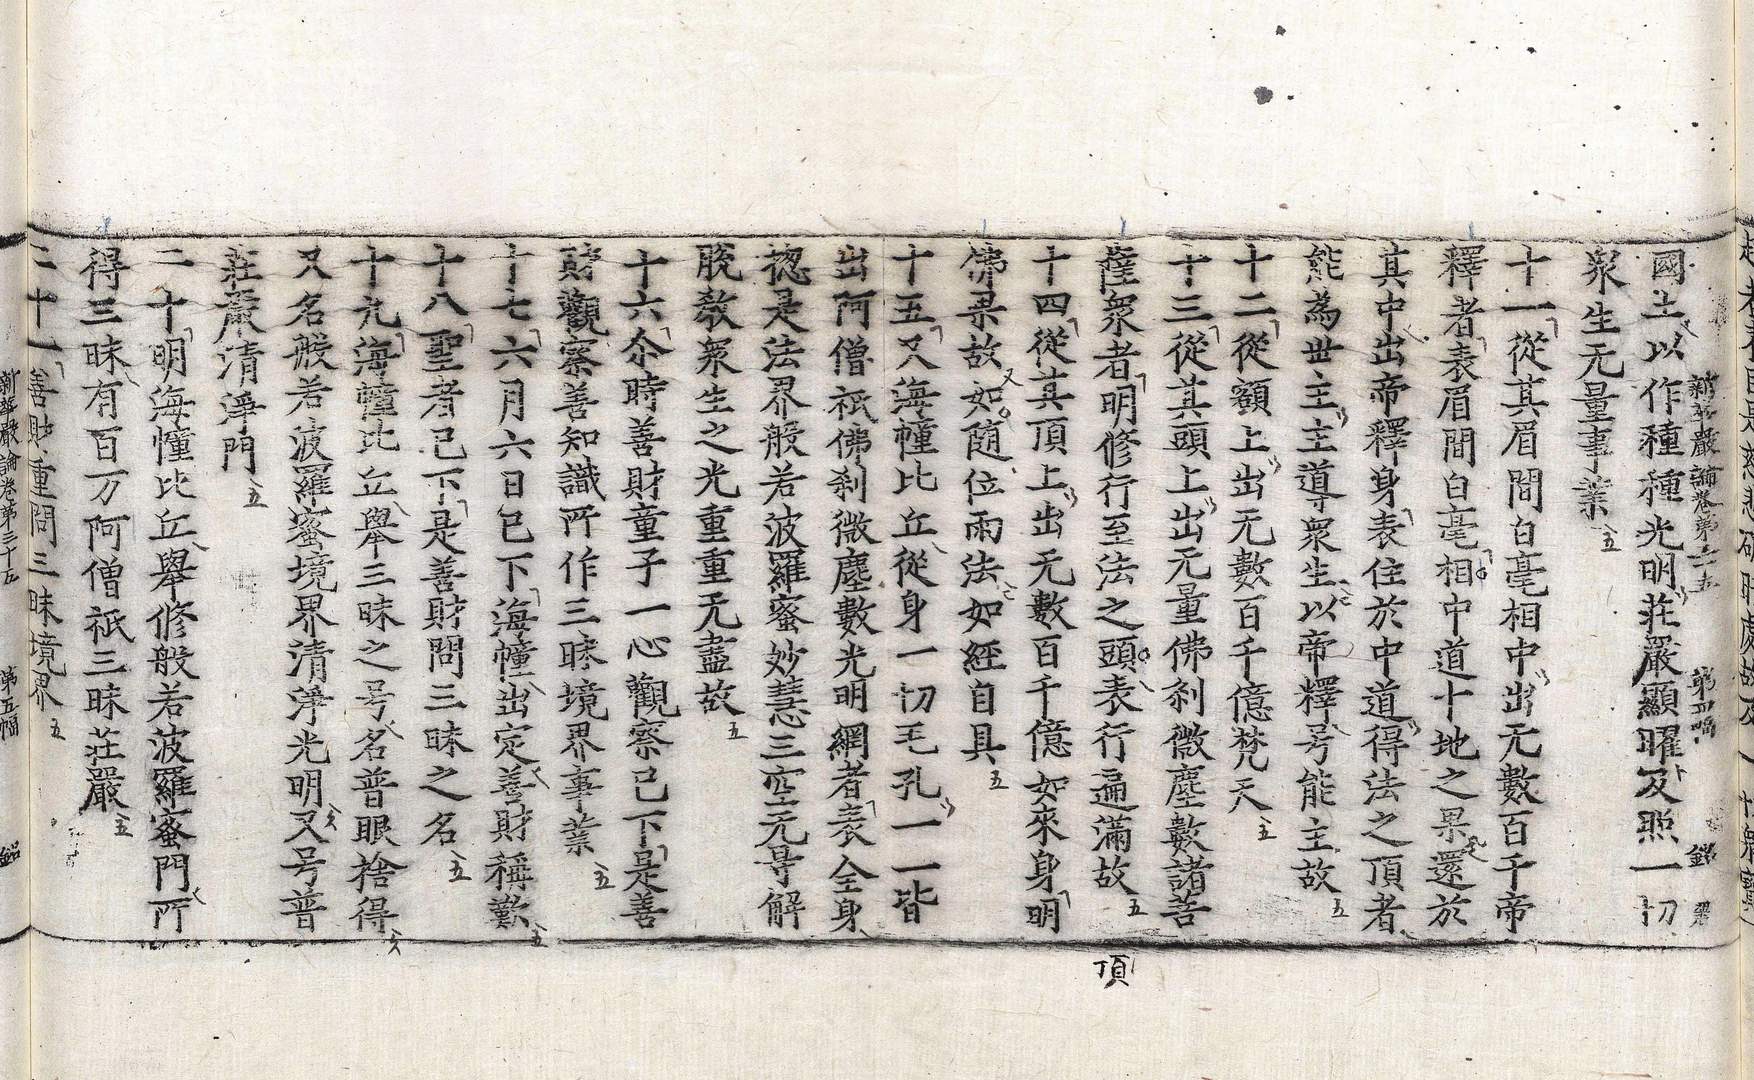 新華嚴論卷第三十五 第四幅 銘
國土以作種種光明莊嚴顯曜及照一切
衆生无量事業
十一從其眉間白毫相中出无數百千帝
釋者表眉間白毫相中道十地之果還於
其中出帝釋身表住於中道得法之頂者
能為世主主導衆生以帝釋号能主故
十二從額上出无數百千億梵天
十三從其頭上出无量佛刹微塵數諸菩
薩衆者明修行至法之頭表行遍滿故
頂
十四從其頂上出无數百千億如來身明
佛果故如随位雨法如經自具
十五又海幢比丘從身一切毛孔一一皆
出阿僧祇佛刹微塵數光明網者表全身
揔是法界般若波羅蜜妙慧三空无㝵解
脫教衆生之光重重无盡故
十六尒時善財童子一心觀察已下是善
財觀察善知識所作三昧境界事業
十七六月六日已下海幢出定善財稱歎
十八聖者已下是善財問三昧之名
十九海幢比丘舉三昧之号名普眼捨得
又名般若波羅蜜境界清淨光明又号普
莊嚴清淨門
二十明海幢比丘舉修般若波羅蜜門所
得三昧有百万阿僧祇三昧莊嚴
二十一善財重問三昧境界
新華嚴論卷第三十五 第五幅 銘